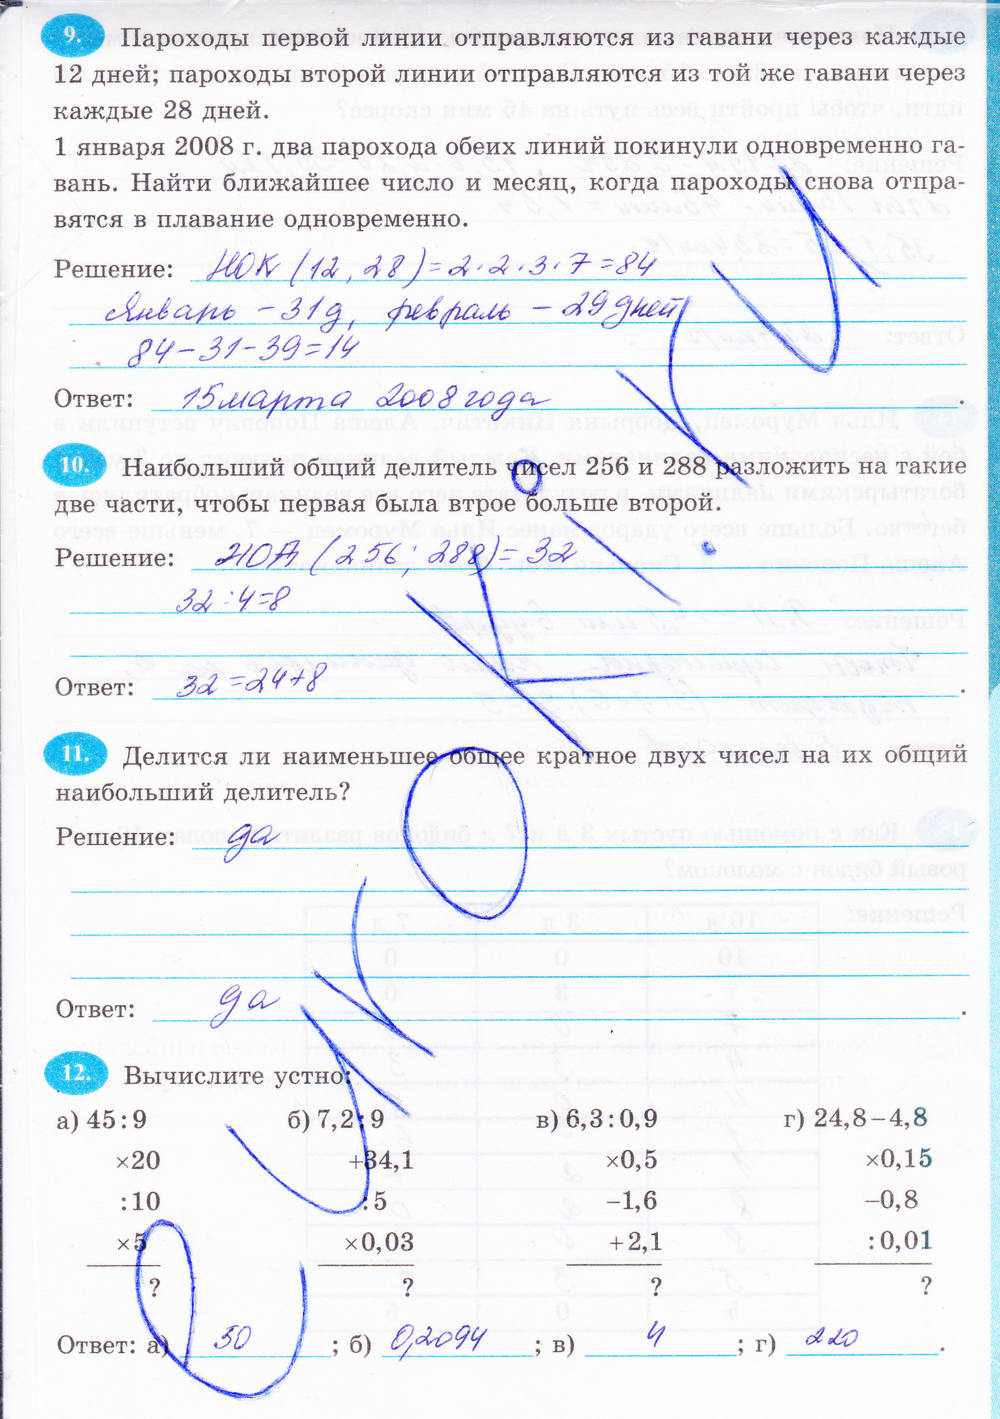 9. Пароходы первой линии отправляются из гавани через каждые
12 дней; пароходы второй линии отправляются из той же гавани через
каждые 28 дней.
1 января 2008 г. два парохода обеих линий покинули одновременно га-
вань. Найти ближайшее число и месяц, когда пароходы снова отпра-
вятся в плавание одновременно.
Решение: НОК (12, 28) = 2·2·3·7=84
Январь – 31 д, февраль – 29 дней
84–31–39=14
Ответ: 15 марта 2008 года.
10. Наибольший общий делитель чисел 256 и 288 разложить на такие
две части, чтобы первая была втрое больше второй.
Решение: НОД (256; 288)= 32
32:4=8
Ответ: 32=24+8.
11. Делится ли наименьшее общее кратное двух чисел на их общий
наибольший делитель?
Решение: да
Ответ: да.
12. Вычислите устно:
а) 45:9 б) 7,2:9 в) 6,3:0,9 г) 24,8–4,8
×20 +34,1 ×0,5 ×0,15
:10 :5 –1,6 –0,8
×5 ×0,03 +2,1 :0,01
? ? ? ?
Ответ: а) 50; б) 0,2094; в) 4; г) 220.